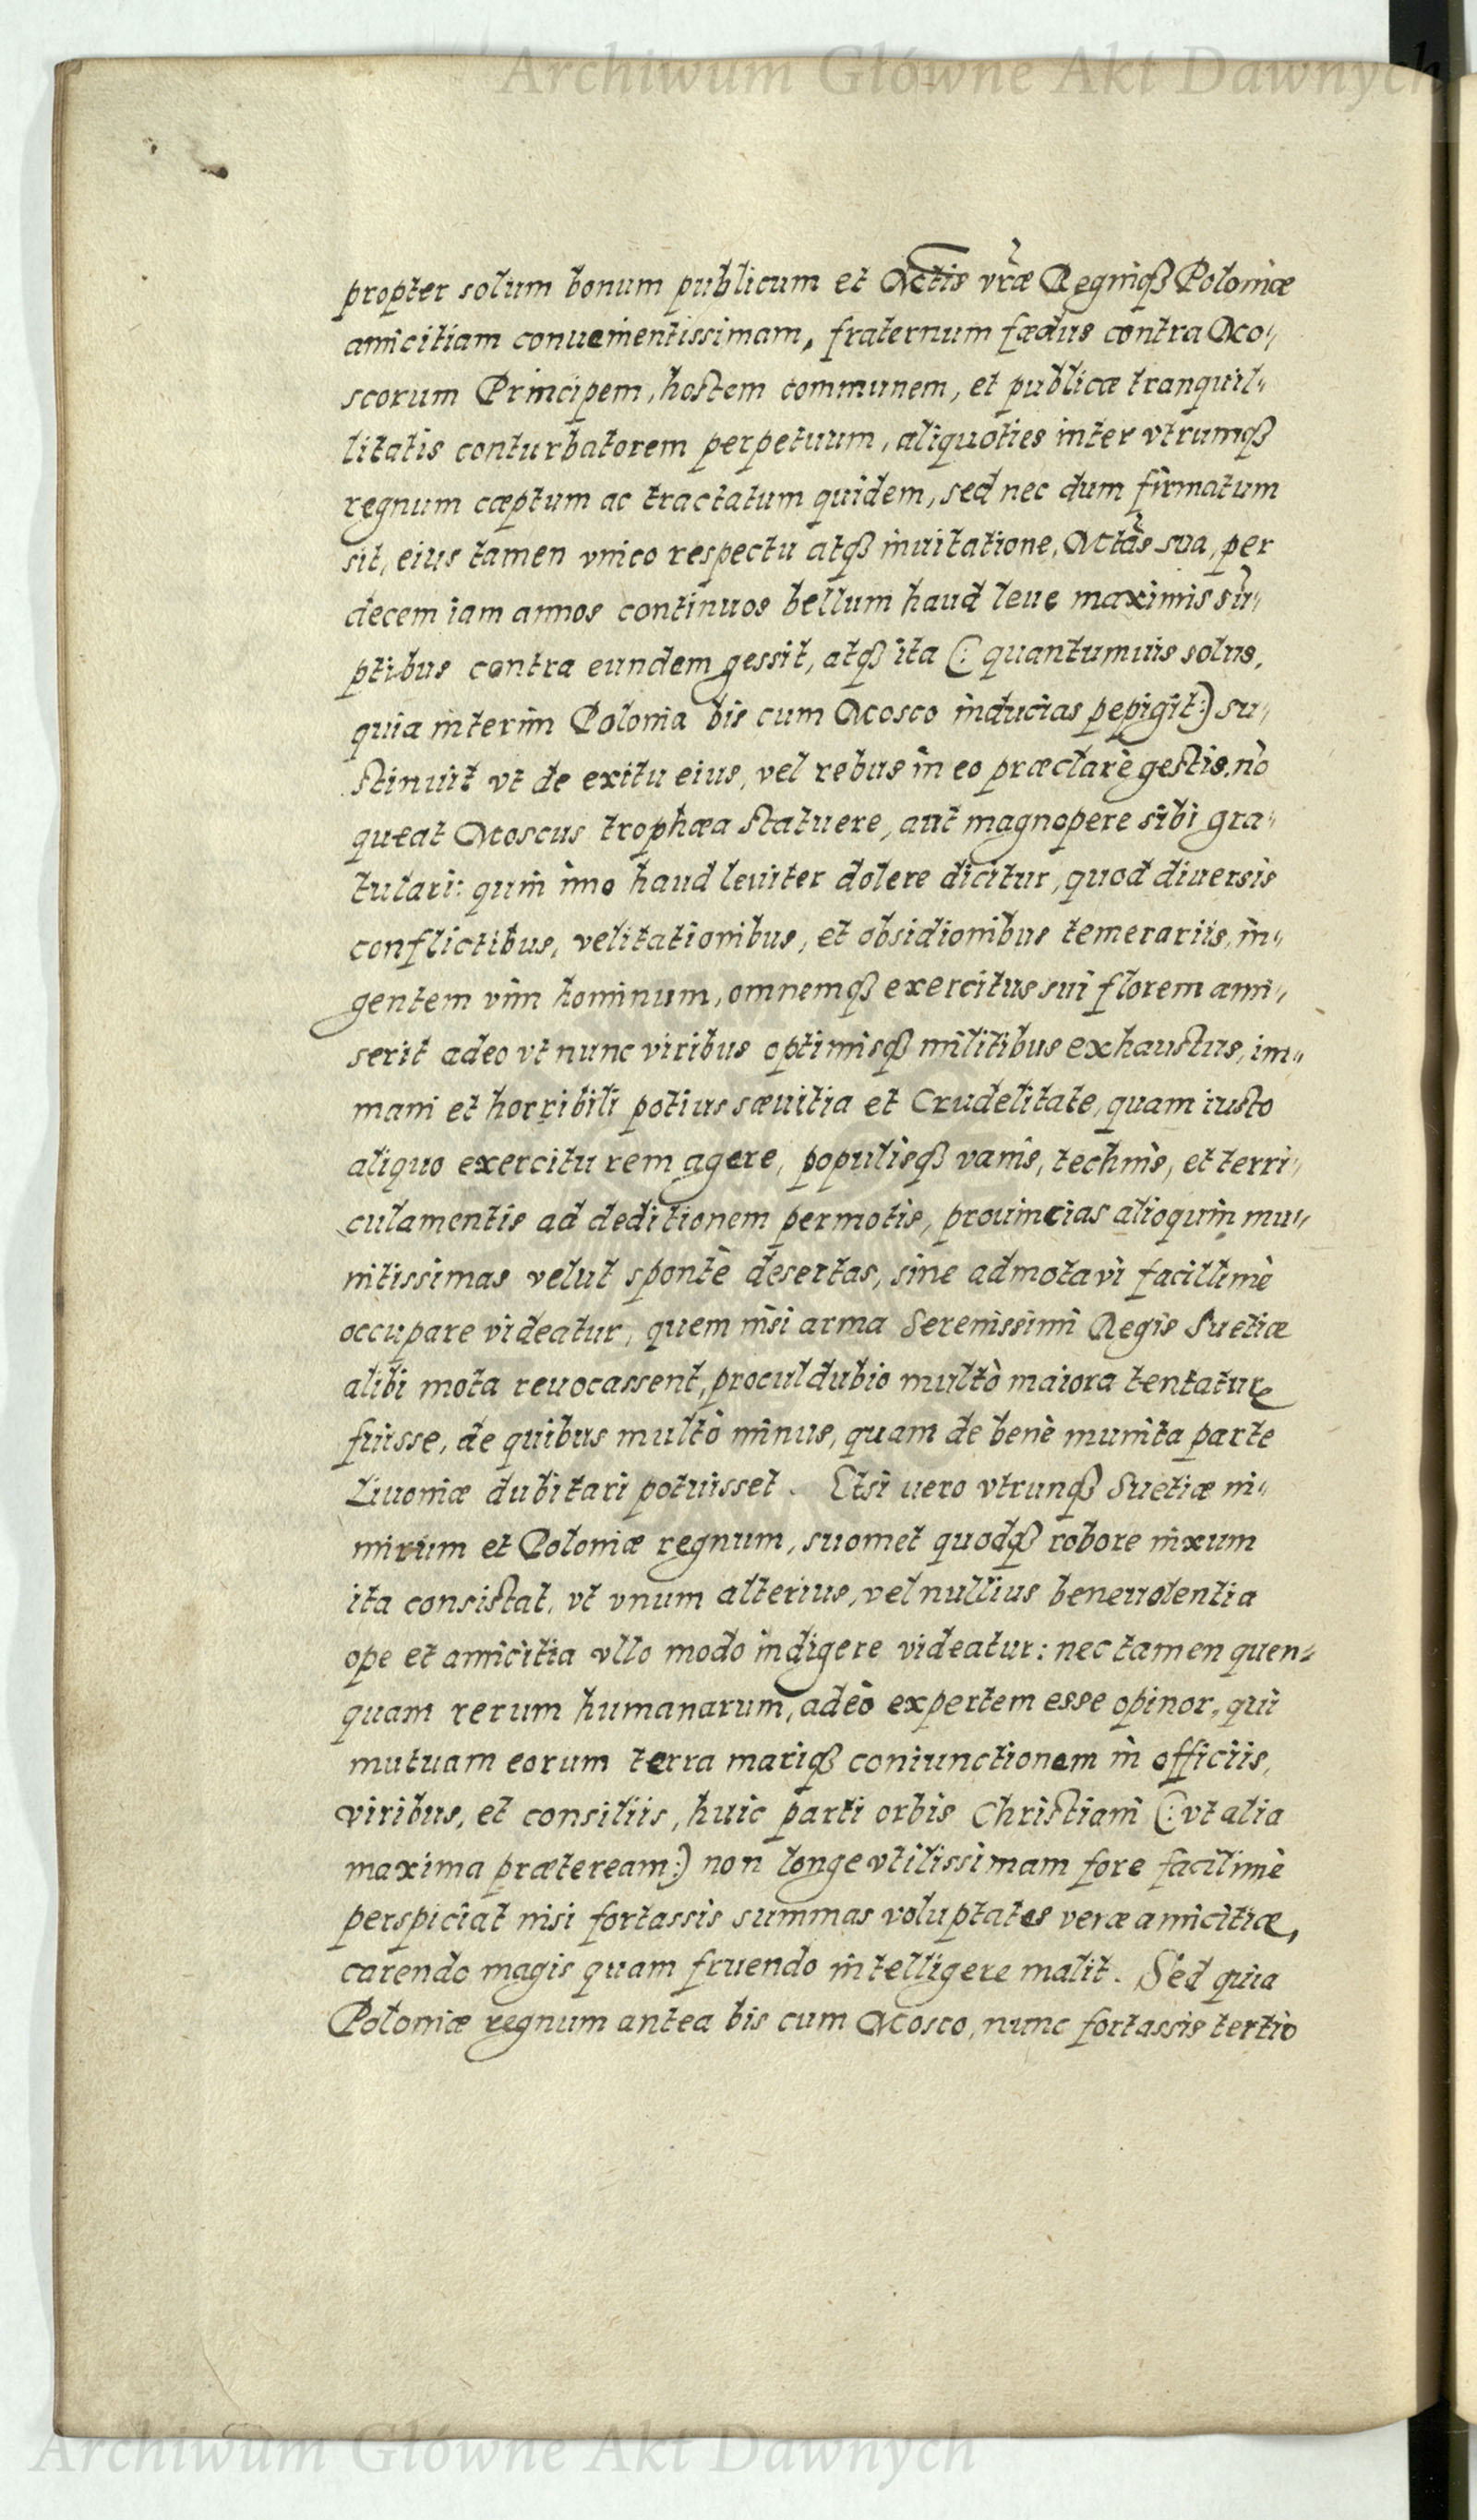 Archiwum Główne Akt Dawnych
propter solum bonum publicum et Mctis vr̃æ Regniq3 Poloniæ
amicitiam conuenientissimam, fraternum fædus contra Mo„
scorum Principem, hostem communem, et publicæ tranquil„
litatis conturbatorem perpetuum, aliquoties inter vtrumq3
regnum cæptum ac tractatum quidem, sed nec dum firmatum
sit, eius tamen vnico respectu atq3 inuitatione, Mctãs sua, per
decem iam annos continuos bellum haud leue maximis sũ„
ptibus contra eundem gessit, atq3 ita (: quantumuis solus,
quia interim Polonia bis cum Mosco inducias pepigit:) su„
stinuit vt de exitu eius, vel rebus in eo præclarè gestis, nõ
queat Moscus trophæa statuere, aut magnopere sibi gra„
tulari: quin imo haud leuiter dolere dicitur, quod diuersis
conflictibus, velitationibus, et obsidionibus temerariis, in„
gentem vim hominum, omnemq3 exercitus sui florem ami„
serit adeo vt nunc viribus optimisq3 militibus exhaustus, im„
mani et horribili potius sæuitia et Crudelitate, quam iusto
aliquo exercitu rem agere, populisq3 vanis, technis, et terri„
culamentis ad deditionem permotis, prouincias alioquin mu„
nitissimas velut spontè desertas, sine admota vi facillimè
occupare videatur, quem nisi arma Serenissimi Regis Suetiæ
alibi mota reuocassent, proculdubio multò maiora tentatur
fuisse, de quibus multò minus, quam de benè munita parte
Liuoniæ dubitari potuisset. Etsi uero vtrunq3 Suetiæ ni„
mirum et Poloniæ regnum, suomet quodq3 robore nixum
ita consistat, vt vnum alterius, vel nullius beneuolentia
ope et amicitia vllo modo indigere videatur: nec tamen quen„
quam rerum humanarum, adeò expertem esse opinor, qui
mutuam eorum terra mariq3 coniunctionem in officiis,
viribus, et consiliis, huic parti orbis Christiani (: vt alia
maxima præteream:) non longe vtilissimam fore facilimè
perspiciat nisi fortassis summas voluptates veræ amicitiæ,
carendo magis quam fruendo intelligere malit. Sed quia
Poloniæ regnum antea bis cum Mosco, nunc fortassis tertio
Archiwum Główne Akt Dawnych